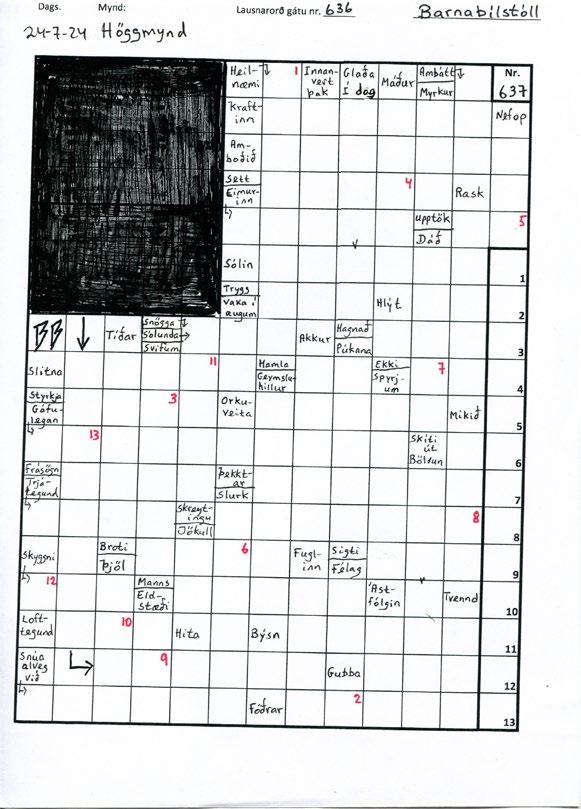 Dags. Mynd: Lausnarorð gátu nr. 636 Barnabílstóll
24-7-24 Höggmynd
Heil-næmi 1 Innan-veit þak Glaða Í dag Máður Ambátt Myrkur Nr. 637
Kraft-inn Nefop
Am-boðið
Sett Eimur-inn 4 Rask
upptök Dáð 5
Sólin 1
Trygg vaxa í augum Hlýt 2
BB Tíðar Snögga Sólunda Svifum Akkur Hagnað Púkana 3
Slitna 11 Hamla Geymslu-hillur Ekki Spyrj-um 7 4
Styrkja Gáfu-legan 3 Orku-veita Mikið 5
13 Skíti út Böldun 6
Frásögn Trjá-tegund Þekkt-ar Slurk 7
Skreyt-ingu Jökull 8
Skyggni Broti Þjöl 6 Fugl-inn Sigti Félag 9
12 Manns Eld-stæði Ást-fólgin Tvennd 10
Loft-tegund 10 Hita Býsn 11
Snúa alveg við 9 Gubba 12
Fóðrar 2 13